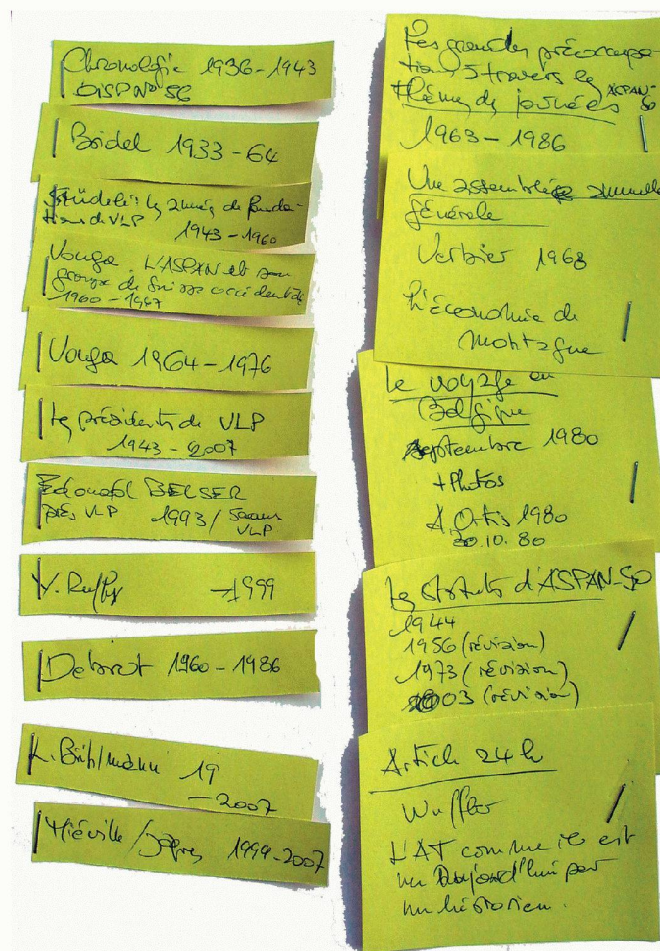 Chronologie 1936-1943
DISP N° 56
Bridel 1933-64
Stüdeli: les années de fonda-
tion de VLP
1943-1960
Vouga. L'ASPAN et son
groupe de Suisse occidentale
1960-1967
Vouga 1964-1976
Les présidents de VLP
1943-2007
BELSER
prés VLP 1993/ VLP
V. Ruffy -1999
Debrot 1960-1986
L. Bühlmann 19
-2007
Hiéville/ 1999-2007
Les grandes préoccupa-
tions à travers les
thèmes de journées ASPAN-SO
1963-1986
Une assemblée annuelle
générale
Verbier 1968
L'économie de
montagne
Le voyage en
Belgique
septembre 1980
+ Photos
A. Ortis 1980
30.10.80
Les statuts d'ASPAN-SO
1944
1956 (révision)
1973 (révision)
2003 (révision)
Article 24 h
Wuffler
L'AT comme il est
vu aujourd'hui par
un historien.